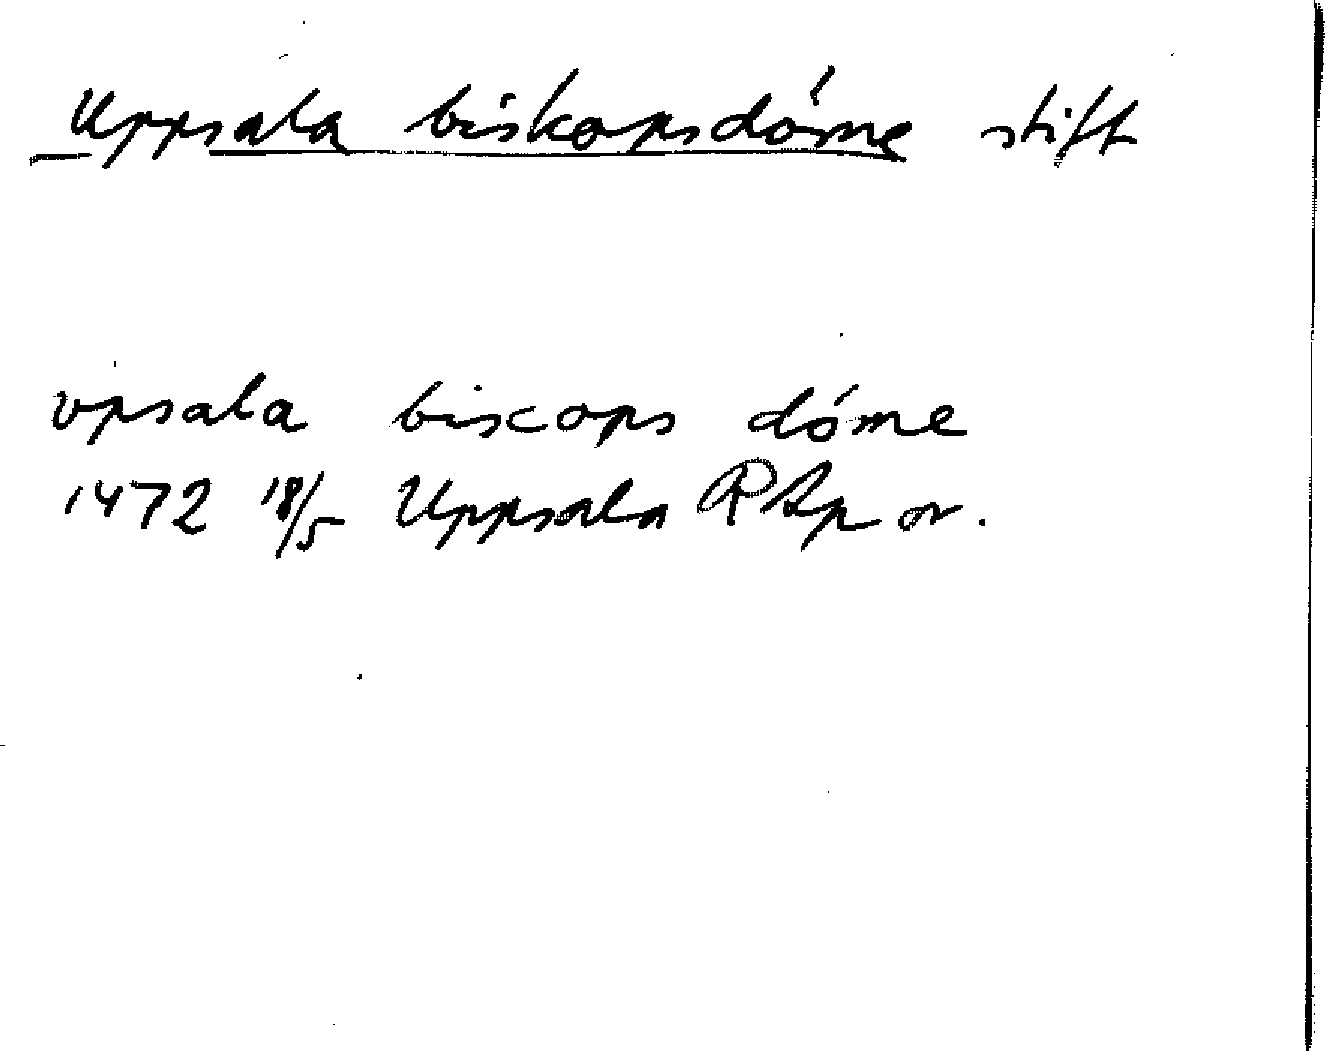 Uppsala biskopsdóme stift
vpsala biscops dóme
1472 18/5 Uppsala RAp or.